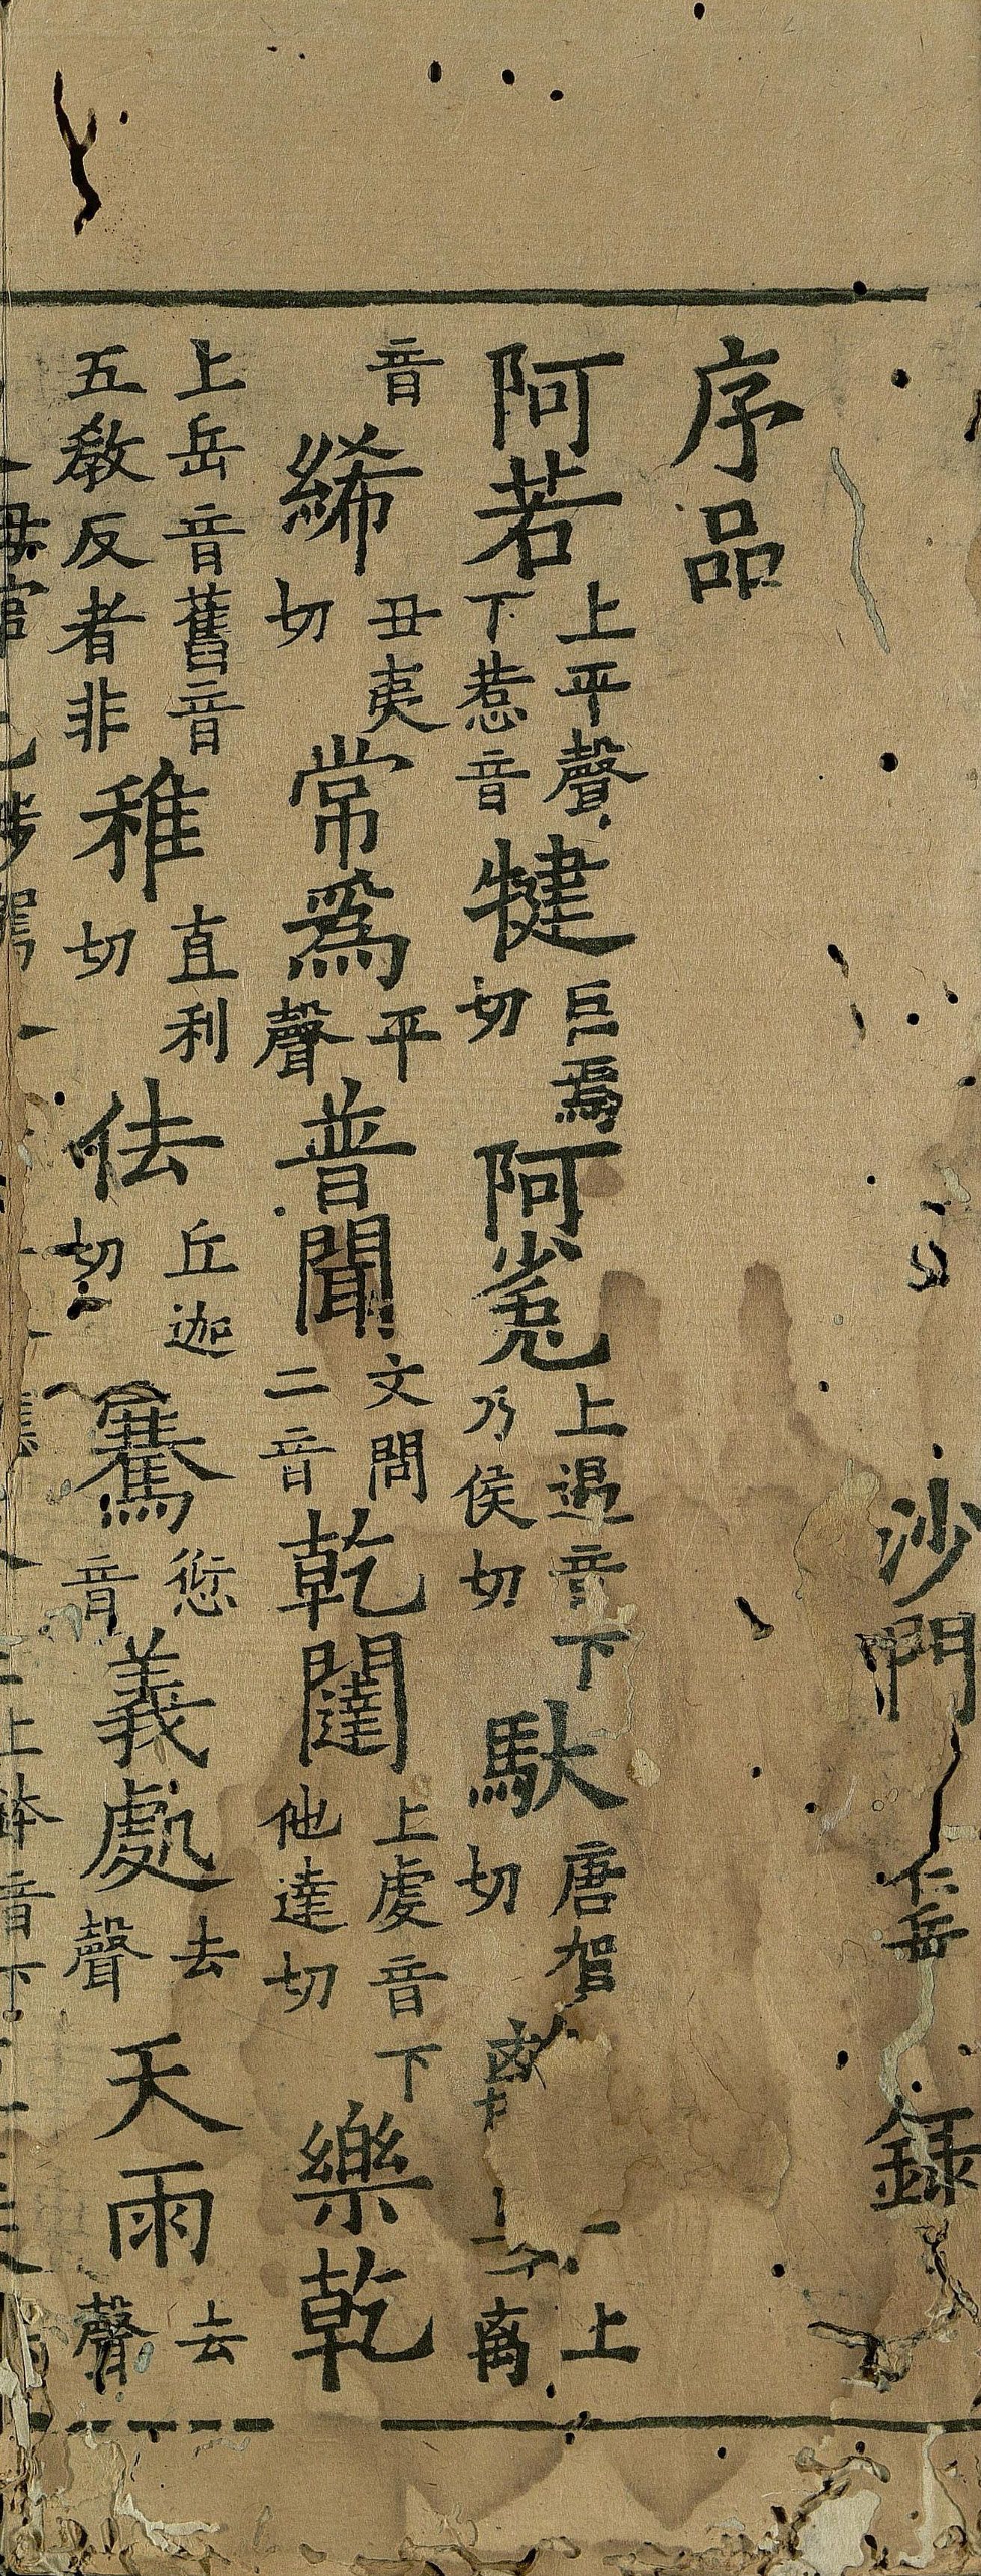 沙門 仁岳 錄
序品
阿若上平聲下惹音犍巨焉切阿㝹上遏音下乃侯切馱唐賀切上离
音絺丑夷切常爲平聲普聞文問二音乾闥上虔音下他達切樂乾
上岳音舊音五教反者非稚直利切佉丘迦切騫愆音義處去聲天雨去聲